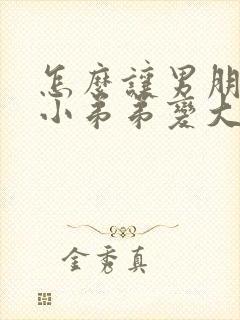 怎麼讓男朋
小弟弟變大
金秀真